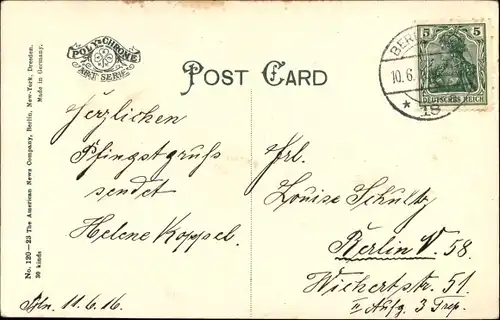 POLY CHROME
ART SERIE
POST CARD
BERL
10.6.
* 18
5 5
DEUTSCHES REICH
No. 120—23 The American News Company, Berlin, New-York, Dresden.
30 kinds Made in Germany.
Herzlichen
Pfingstgruß
sendet
Helene Koppel.
Bln. 11.6.16.
Frl.
Louise Schultz
Berlin N. 58.
Wichertstr. 51
II Aufg. 3 Trep.